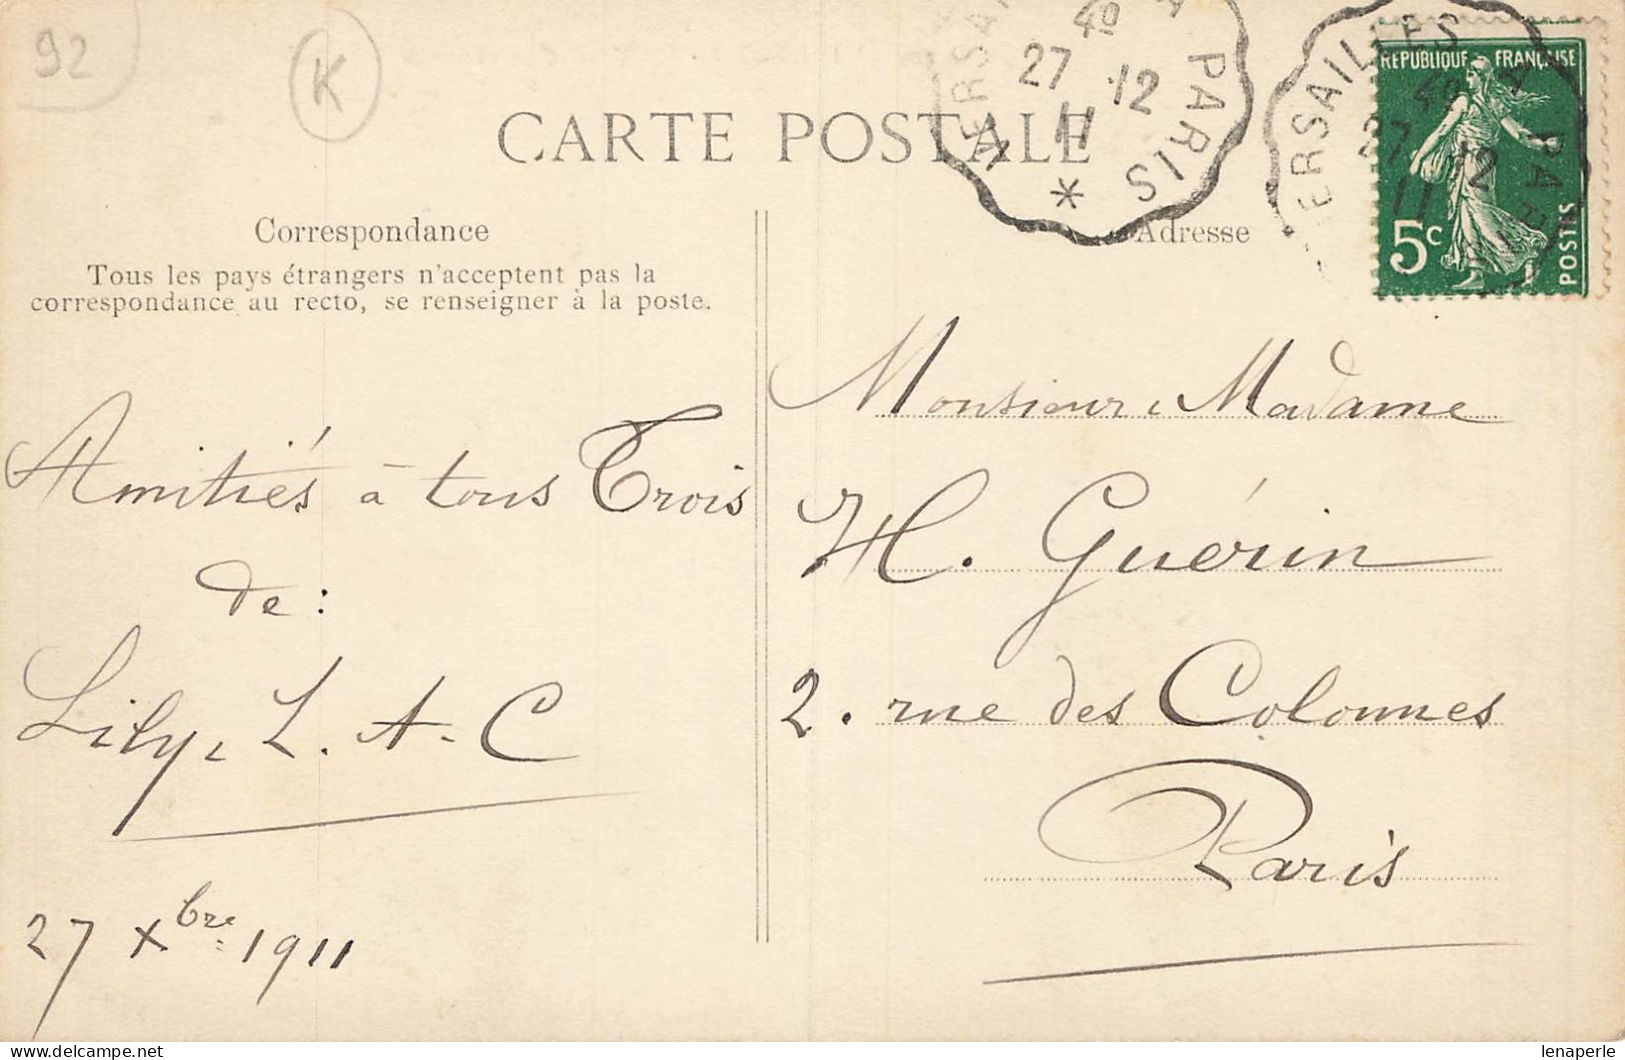 92
K
CARTE POSTALE
VERSAILLES A PARIS
40
27 12
11
*
VERSAILLES A PARIS
40
27 12
11
REPUBLIQUE FRANÇAISE
5c
POSTES
Correspondance
Tous les pays étrangers n'acceptent pas la
correspondance au recto, se renseigner à la poste.
Adresse
Amitiés à tous Trois
de :
Lily, L. A. C
27 Xbre 1911
Monsieur, Madame
H. Guérin
2. rue des Colonnes
Paris
lenaperle